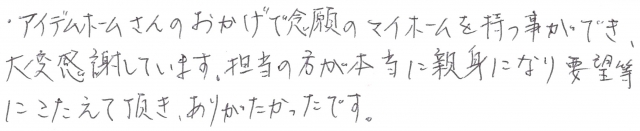 ・アイデムホームさんのおかげで念願のマイホームを持つ事ができ、
大変感謝しています。担当の方が本当に親身になり要望等
にこたえて頂き、ありがたかったです。